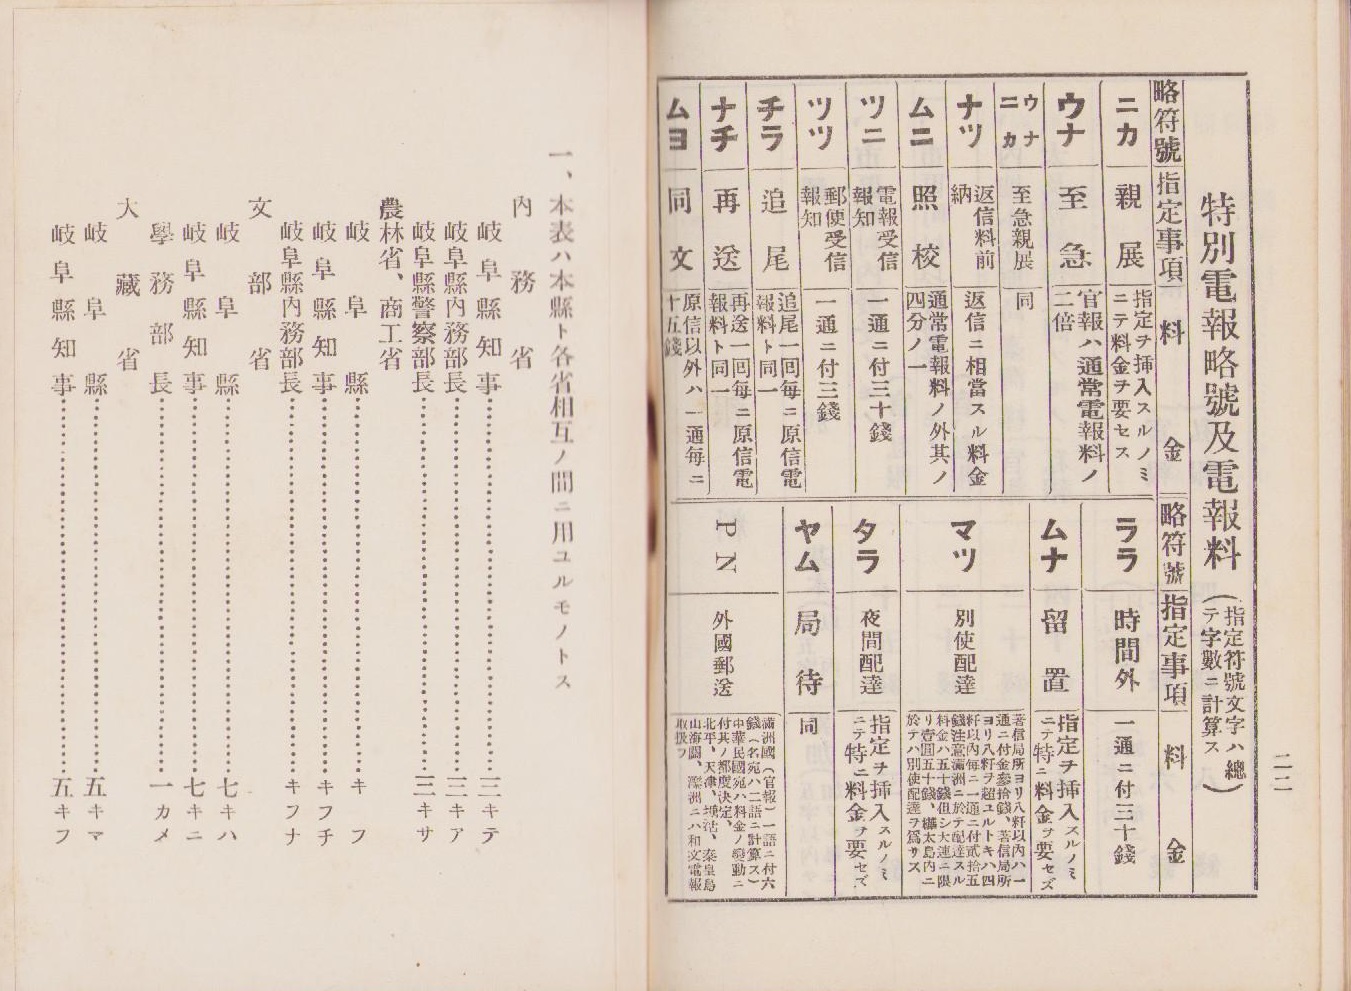 二二
特別電報略號及電報料(指定符號文字ハ總テ字數ニ計算ス)
略符號 指定事項 料金
ニカ 親展 指定ヲ挿入スルノミニテ料金ヲ要セス
ウナ 至急 官報ハ通常電報料ノ二倍
ウナニカ 至急親展 同
ナツ 返信料前納 返信ニ相當スル料金
ムニ 照校 通常電報料ノ外其ノ四分ノ一
ツニ 電報受信報知 一通ニ付三十錢
ツツ 郵便受信報知 一通ニ付三錢
チラ 追尾 追尾一回每ニ原信電報料ト同一
ナチ 再送 再送一回每ニ原信電報料ト同一
ムヨ 同文 原信以外ハ一通每ニ十五錢
略符號 指定事項 料金
ララ 時間外 一通ニ付三十錢
ムナ 留置 指定ヲ挿入スルノミニテ特ニ料金ヲ要セズ
マツ 別使配達 著信局所ヨリ八粁以內ハ一通ニ付金參拾錢、著信局所ヨリ八粁ヲ超ユルトキハ四粁以內每ニ一通ニ付貳拾五錢注意滿洲ニ於テ配達スル料金ハ五十錢但シ大連ニ限リ壹圓五十錢、樺太島內ニ於テハ別使配達ヲ爲サス
タラ 夜間配達 指定ヲ挿入スルノミニテ特ニ料金ヲ要セズ
ヤム 局待 同
PN 外國郵送 滿洲國(官報)一語ニ付六錢(名宛ハ二語ニ計算ス)中華民國宛ハ料金ノ變動ニ付其ノ都度決定、北平、天津、塘沽、秦皇島山海關、滿洲ニハ和文電報取扱フ
一、本表ハ本縣ト各省相互ノ間ニ用ユルモノトス
內務省
岐阜縣知事………三キテ
岐阜縣內務部長………三キア
岐阜縣警察部長………三キサ
農林省、商工省
岐阜縣………キフ
岐阜縣知事………キフチ
岐阜縣內務部長………キフナ
文部省
岐阜縣………七キハ
岐阜縣知事………七キニ
學務部長………一カメ
大藏省
岐阜縣………五キマ
岐阜縣知事………五キフ